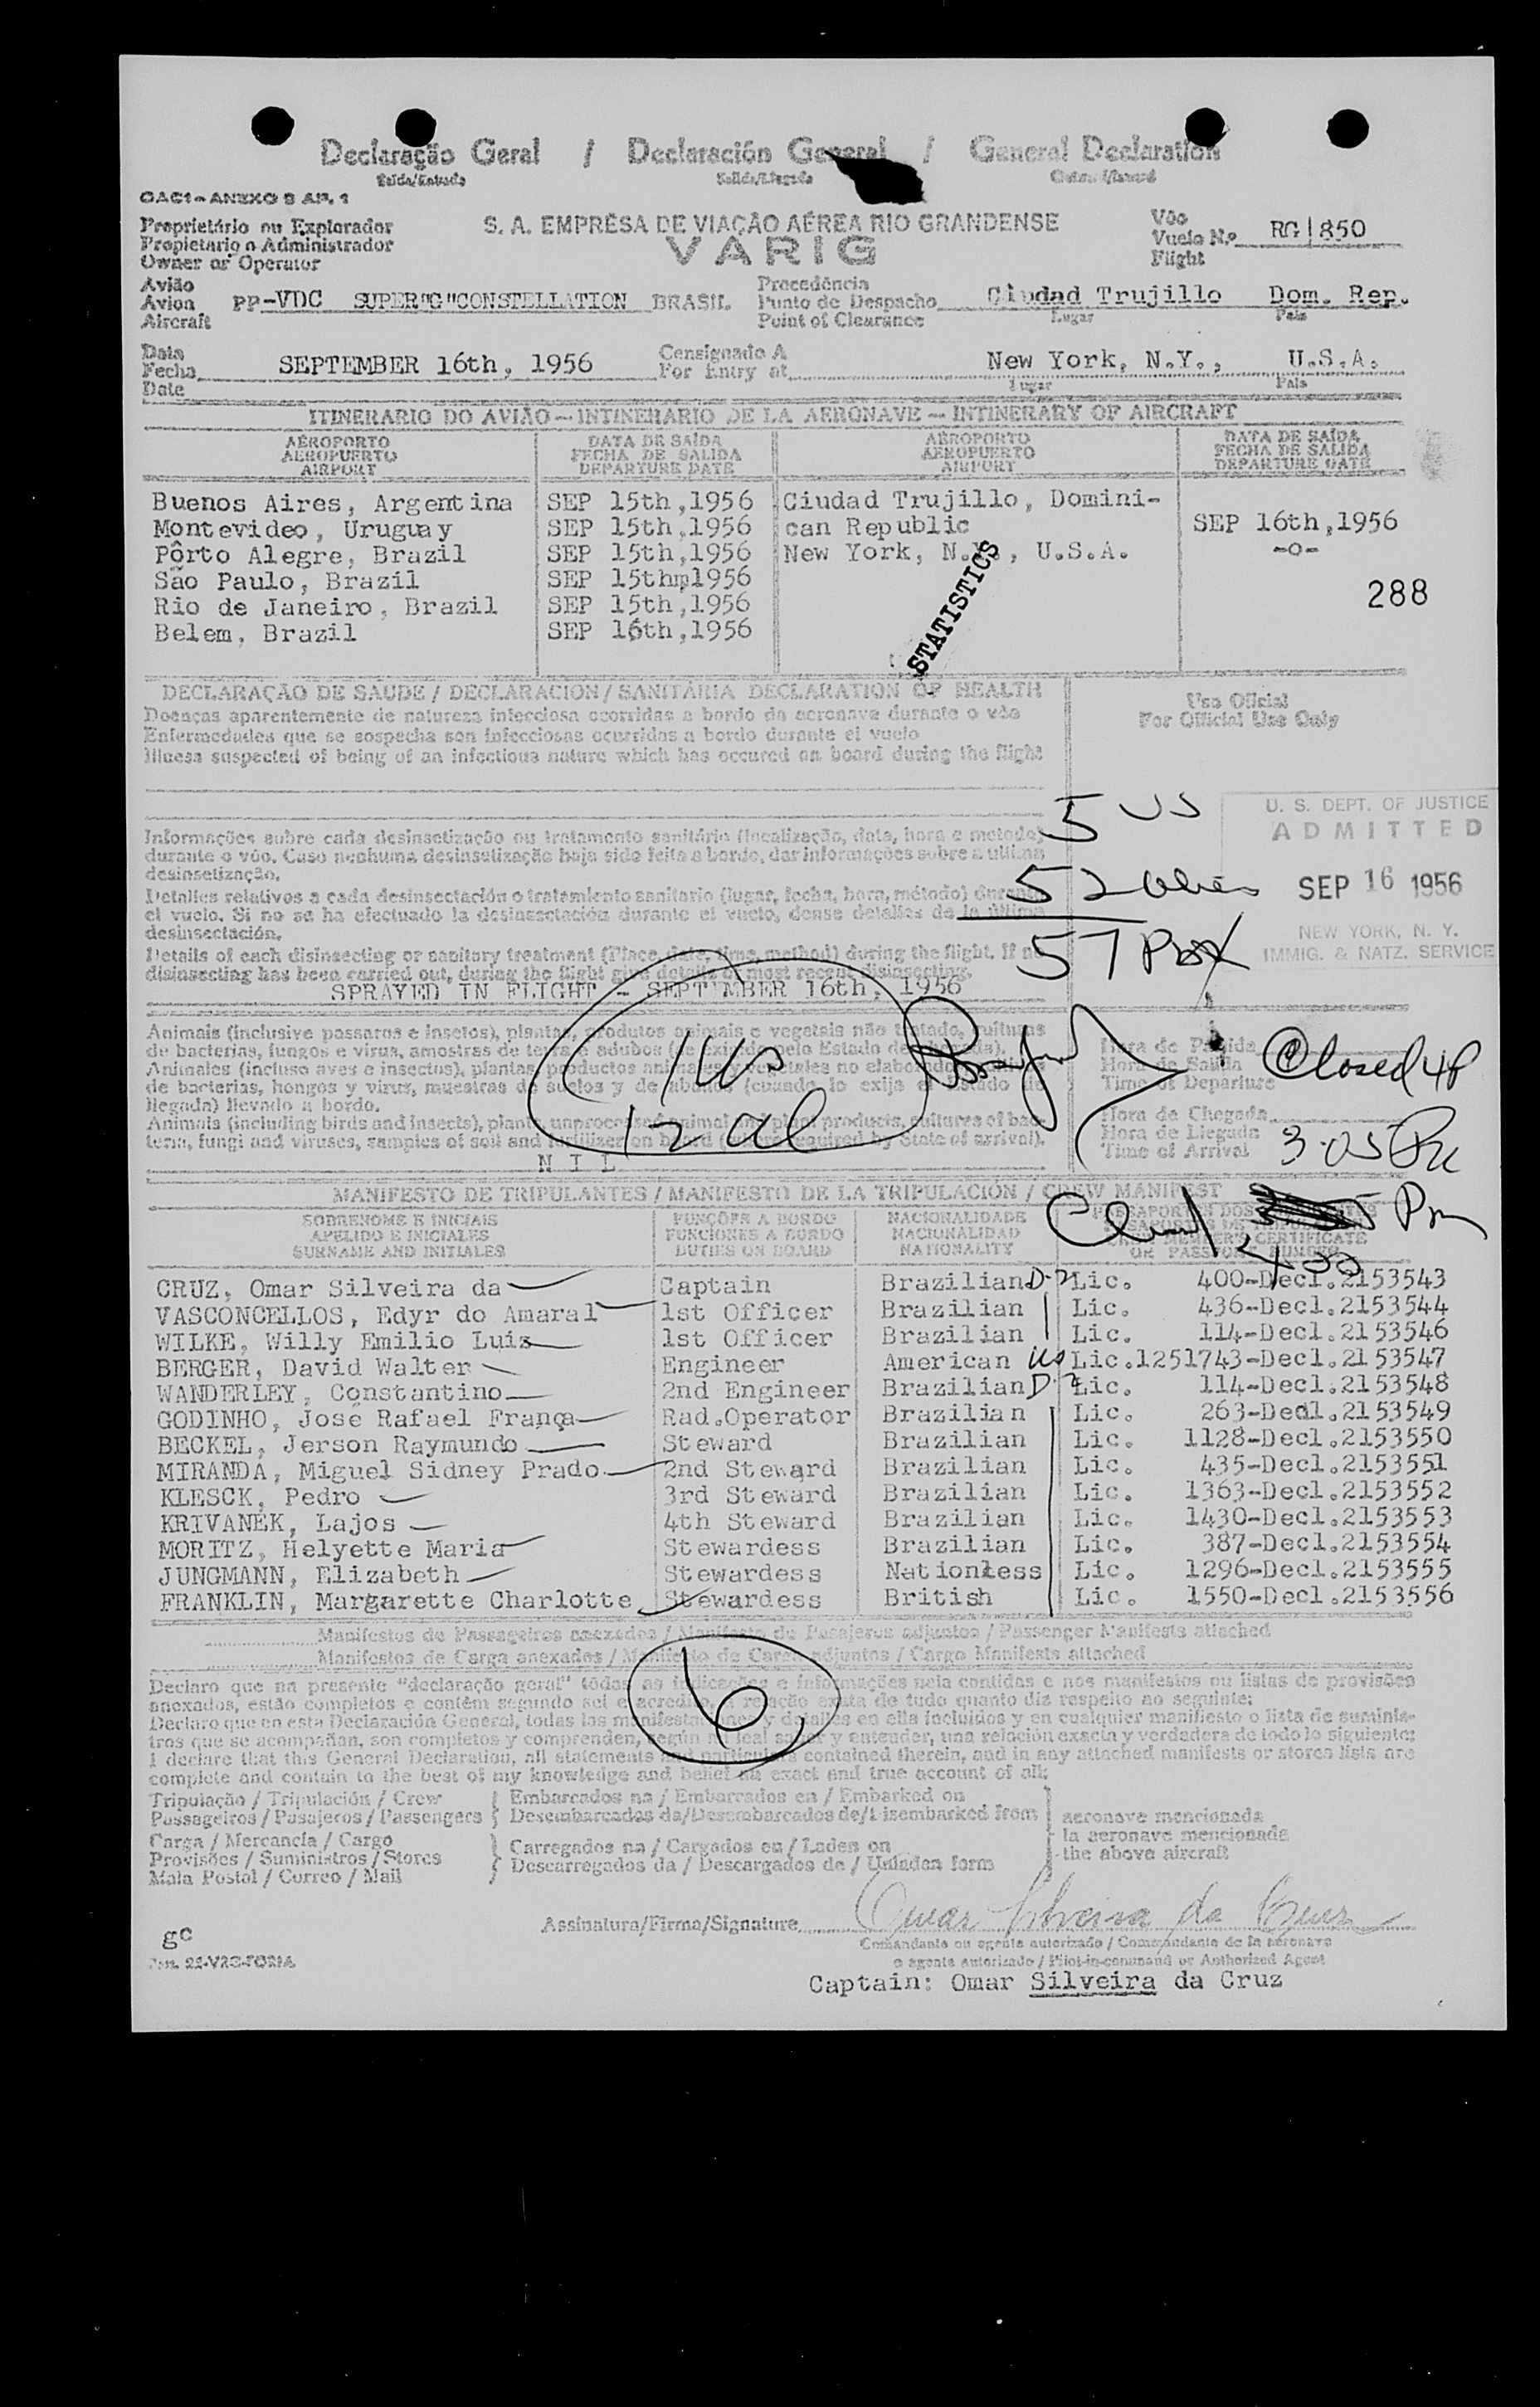 Declaração Geral / Declaración General / General Declaration
Saída/Entrada Salida/Llegada
OACI-ANEXO 9 AP. 1
Proprietário ou Explorador
Propietario o Administrador
Owner or Operator
S. A. EMPRÊSA DE VIAÇÃO AÉREA RIO GRANDENSE
VARIG
Vôo
Vuelo N.º RG|850
Flight
Avião
Avion PP-VDC SUPER"G"CONSTELLATION BRASIL
Aircraft
Precedência
Punto de Despacho Ciudad Trujillo Dom. Rep.
Point of Clearance Lugar Pais
Data
Fecha SEPTEMBER 16th, 1956
Date
Consignado A
For Entry at New York, N.Y., U.S.A.
Lugar Pais
ITINERARIO DO AVIÃO — INTINERARIO DE LA AERONAVE — INTINERARY OF AIRCRAFT
AÉROPORTO DATA DE SAÍDA AÉROPORTO DATA DE SAÍDA
AEROPUERTO FECHA DE SALIDA AEROPUERTO FECHA DE SALIDA
AIRPORT DEPARTURE DATE AIRPORT DEPARTURE DATE
Buenos Aires, Argentina SEP 15th,1956 Ciudad Trujillo, Domini-
Montevideo, Uruguay SEP 15th,1956 can Republic SEP 16th,1956
Pôrto Alegre, Brazil SEP 15th,1956 New York, N.Y., U.S.A. -o-
São Paulo, Brazil SEP 15th 1956
Rio de Janeiro, Brazil SEP 15th,1956
Belem, Brazil SEP 16th,1956
288
STATISTICS
DECLARAÇÃO DE SAUDE / DECLARACION / SANITÁRIA DECLARATION OF HEALTH
Doenças aparentemente de natureza infecciosa ocorridas a bordo da aeronave durante o vôo
Enfermedades que se sospecha son infecciosas ocurridas a bordo durante el vuelo
Illness suspected of being of an infectious nature which has occured on board during the flight
Uso Oficial
For Official Use Only
Informações sobre cada desinsetização ou tratamento sanitário (localização, data, hora e metodo)
durante o vôo. Caso nenhuma desinsetização haja sido feita a bordo, dar informações sobre a ultima
desinsetização.
Detalles relativos a cada desinsectación o tratamiento sanitario (lugar, fecha, hora, método) durante
el vuelo. Si no se ha efectuado la desinsectación durante el vuelo, dense detalles de la última
desinsectación.
Details of each disinsecting or sanitary treatment (Place, date, time, method) during the flight. If no
disinsecting has been carried out, during the flight give details of most recent disinsecting.
SPRAYED IN FLIGHT - SEPTEMBER 16th, 1956
5 US
52
57
U. S. DEPT. OF JUSTICE
ADMITTED
SEP 16 1956
NEW YORK, N. Y.
IMMIG. & NATZ. SERVICE
Animais (inclusive passaros e insetos), plantas, produtos animais e vegetais não tratado, culturas
de bacterias, fungos e virus, amostras de terra e adubos (se exigido pelo Estado de chegada).
Animales (incluso aves e insectos), plantas, productos animales y vegetales no elaborados
de bacterias, hongos y virus, muestras de suelos y de abonos (cuando lo exija el Estado de
llegada) llevado a bordo.
Animals (including birds and insects), plants, unprocessed animal and plant products, cultures of bac-
teria, fungi and viruses, samples of soil and fertilizer on board (where required by State of arrival).
NIL
1 US
12 al
Hora de Partida
Hora de Salida
Time of Departure
Closed 4P
Hora de Chegada
Hora de Llegada
Time of Arrival 3-05 PM
MANIFESTO DE TRIPULANTES / MANIFESTO DE LA TRIPULACIÓN / CREW MANIFEST
Pm
400
SOBRENOME E INICIAIS FUNÇÕES A BORDO NACIONALIDADE
APELIDO E INICIALES FUNCIONES A BORDO NACIONALIDAD
SURNAME AND INITIALES DUTIES ON BOARD NATIONALITY CREW MEMBER'S CERTIFICATE OR PASSPORT NUMBER
CRUZ, Omar Silveira da Captain Brazilian D-2 Lic. 400-Decl.2153543
VASCONCELLOS, Edyr do Amaral 1st Officer Brazilian Lic. 436-Decl.2153544
WILKE, Willy Emilio Luiz 1st Officer Brazilian Lic. 114-Decl.2153546
BERGER, David Walter Engineer American US Lic.1251743-Decl.2153547
WANDERLEY, Constantino 2nd Engineer Brazilian D-2 Lic. 114-Decl.2153548
GODINHO, José Rafael França Rad.Operator Brazilian Lic. 263-Decl.2153549
BECKEL, Jerson Raymundo Steward Brazilian Lic. 1128-Decl.2153550
MIRANDA, Miguel Sidney Prado 2nd Steward Brazilian Lic. 435-Decl.2153551
KLESCK, Pedro 3rd Steward Brazilian Lic. 1363-Decl.2153552
KRIVANEK, Lajos 4th Steward Brazilian Lic. 1430-Decl.2153553
MORITZ, Helyette Maria Stewardess Brazilian Lic. 387-Decl.2153554
JUNGMANN, Elizabeth Stewardess Nationless Lic. 1296-Decl.2153555
FRANKLIN, Margarette Charlotte Stewardess British Lic. 1550-Decl.2153556
Manifestos de Passageiros anexados / Manifesto de Pasajeros adjuntos / Passenger Manifests attached
Manifestos de Carga anexados / Manifiesto de Carga adjuntos / Cargo Manifests attached
6
Declaro que na presente "declaração geral" todas as indicações e informações nela contidas e nos manifestos ou listas de provisões
anexados, estão completos e contêm segundo sei e acredito, a relação exata de tudo quanto diz respeito ao seguinte:
Declaro que en esta Declaración General, todas las manifestaciones y detalles en ella incluidos y en cualquier manifiesto o lista de suminis-
tros que se acompañan, son completos y comprenden, según mi leal saber y entender, una relación exacta y verdadera de todo lo siguiente:
I declare that this General Declaration, all statements and particulars contained therein, and in any attached manifests or stores lists are
complete and contain to the best of my knowledge and belief an exact and true account of all:
Tripulação / Tripulación / Crew Embarcados na / Embarcados en / Embarked on
Passageiros / Pasajeros / Passengers Desembarcados da/Desembarcados de/Disembarked from aeronave mencionada
Carga / Mercancía / Cargo Carregados na / Cargados en / Laden on la aeronave mencionada
Provisões / Suministros / Stores Descarregados da / Descargados de / Unladen form the above aircraft
Mala Postal / Correo / Mail
Assinatura/Firma/Signature Omar Silveira da Cruz
Comandante ou agente autorizado / Comandante de la aeronave
o agente autorizado / Pilot-in-command or Authorized Agent
gc
Captain: Omar Silveira da Cruz